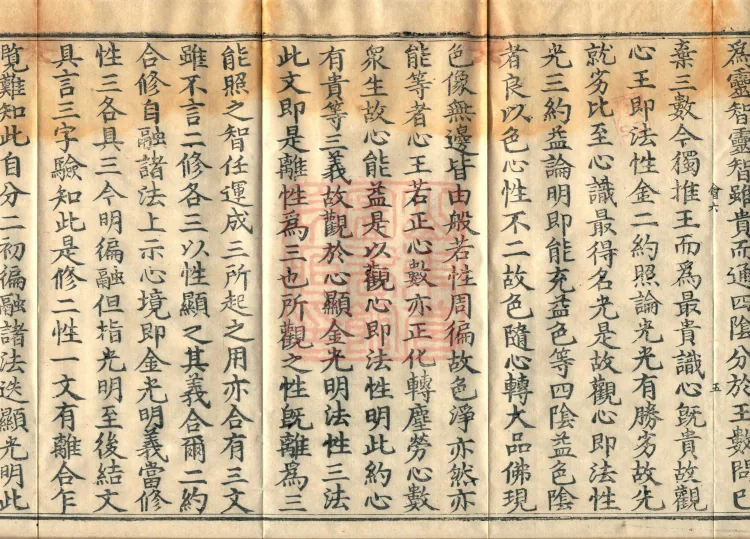 爲靈智靈智雖貴而通四陰分於王數問已
會六
五
棄三數今獨推王而爲最貴識心旣貴故觀
心王即法性金二約照論光光有勝劣故先
就劣比至心識最得名光是故觀心即法性
光三約益論明即能充益色等四陰益色陰
者良以色心性不二故色隨心轉大品佛現
色像無邊皆由般若性周徧故色淨亦然亦
能等者心王若正心數亦正化轉塵勞心數
衆生故心能益是以觀心即法性明此約心
有貴等三義故觀於心顯金光明法性三法
此文即是離性爲三也所觀之性旣離爲三
能照之智任運成三所起之用亦合有三文
雖不言二修各三以性顯之其義合爾二約
合修自融諸法上示心境即金光明義當修
性三各具三今明徧融但指光明至後結文
具言三字驗知此是修二性一文有離合乍
覽難知此自分二初徧融諸法迭顯光明此